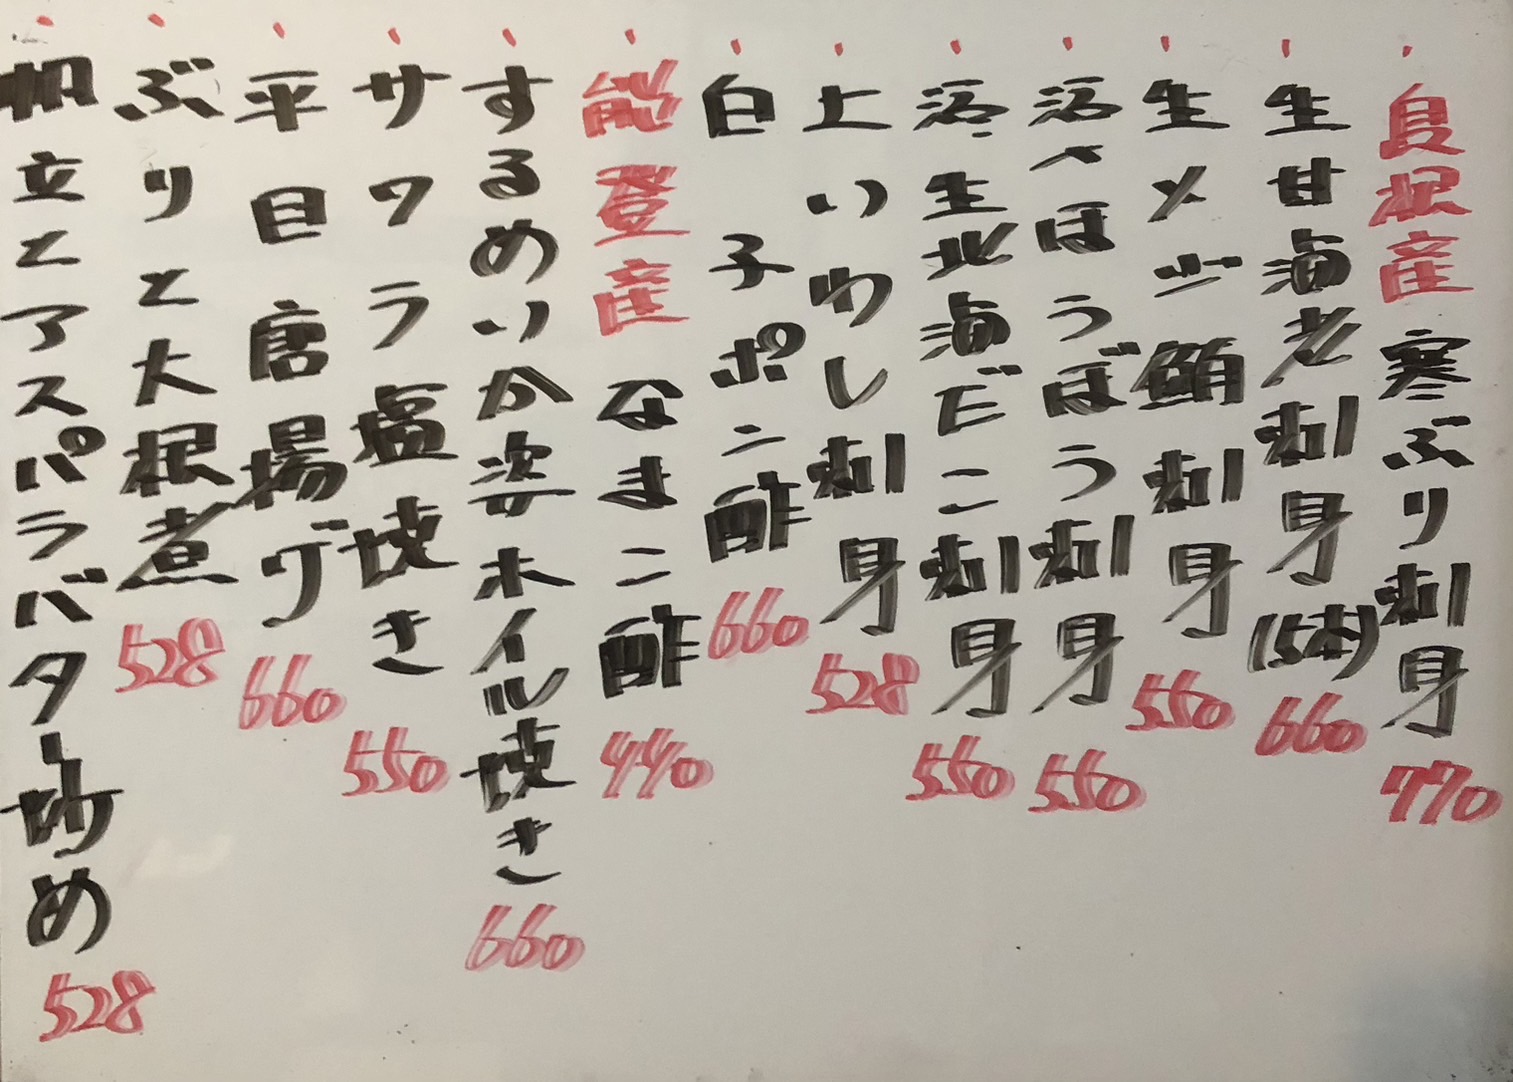 島根産 寒ぶり刺身 770
生甘海老刺身(5本) 660
生メジ鮪刺身 550
活〆ほうぼう刺身 550
活生北海だこ刺身 550
上いわし刺身 528
白子ポン酢 660
能登産 なまこ酢 440
するめいか姿ホイル焼き 660
サワラ塩焼き 550
平目唐揚げ 660
ぶりと大根煮 528
帆立とアスパラバター炒め 528